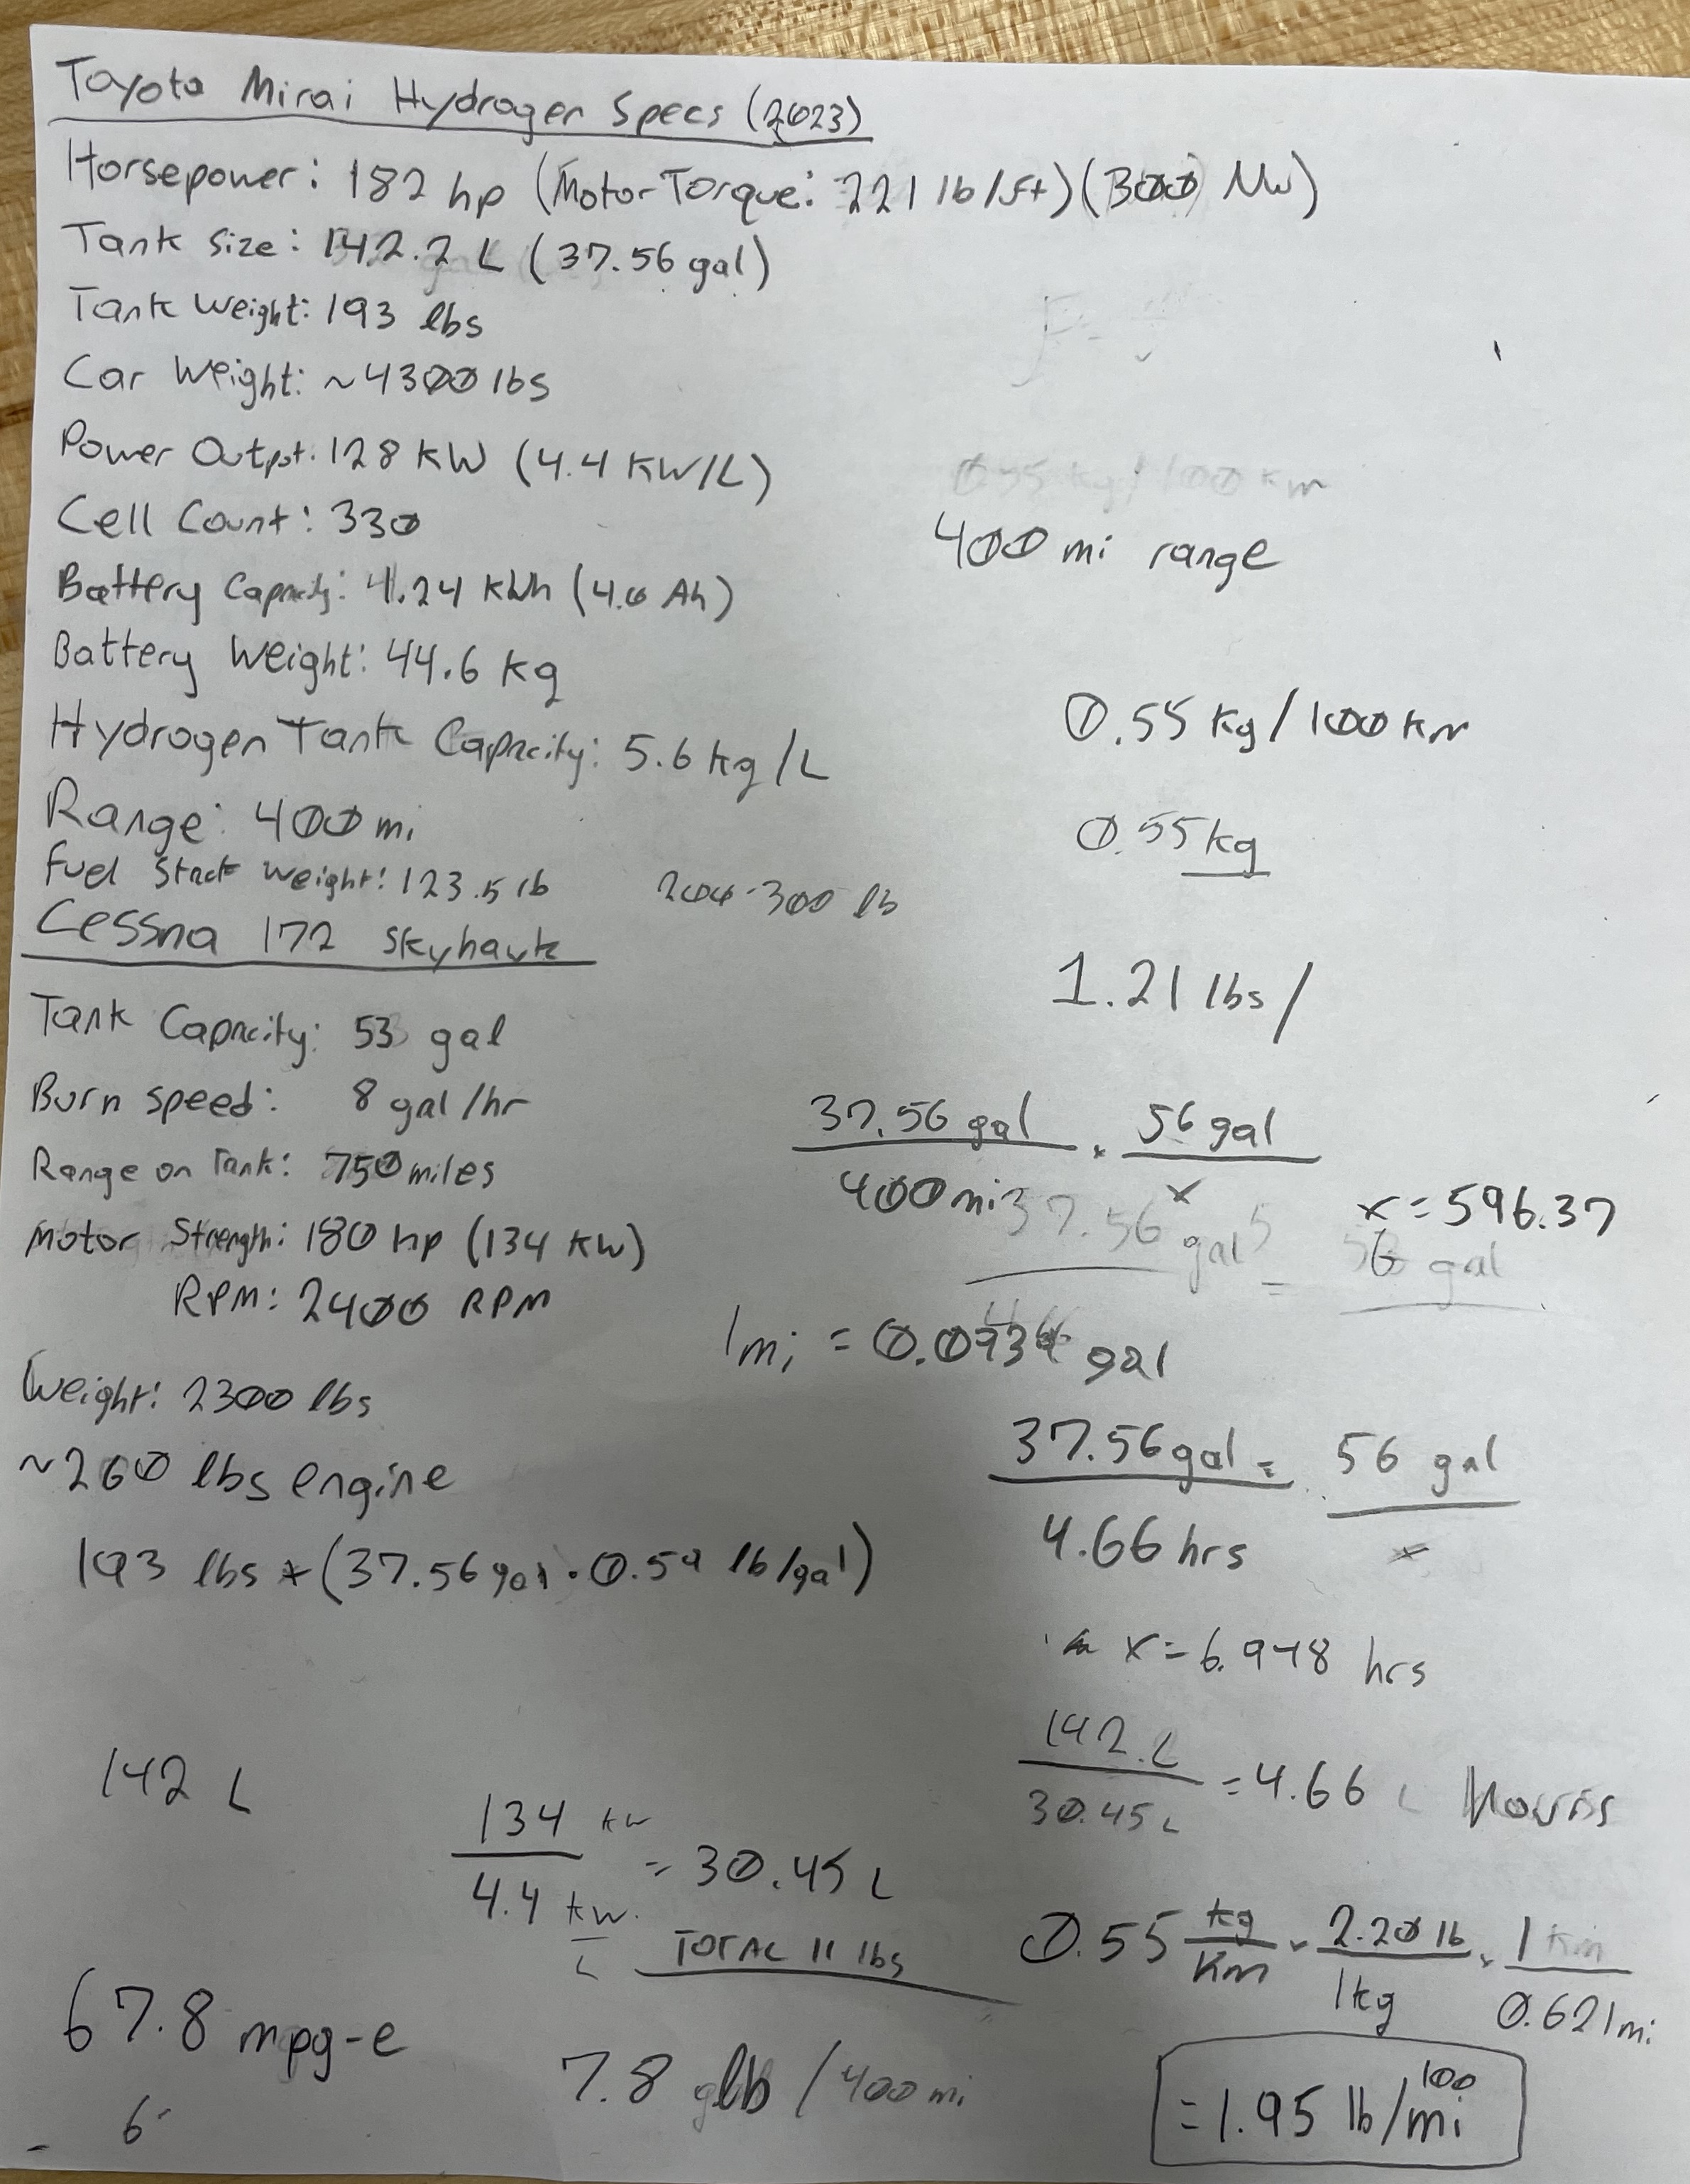 Toyota Mirai Hydrogen Specs (2023)
Horsepower: 182 hp (Motor Torque: 221 lb/ft) (300 Nm)
Tank Size: 142.2 L (37.56 gal)
Tank Weight: 193 lbs
Car Weight: ~4300 lbs
Power Output: 128 KW (4.4 KW/L)
Cell Count: 330
Battery Capacity: 1.24 kWh (4.0 Ah)
Battery Weight: 44.6 kg
Hydrogen Tank Capacity: 5.6 kg/L
Range: 400 mi
Fuel Stack Weight: 123.5 lb
200-300 lb
Cessna 172 Skyhawk
Tank Capacity: 53 gal
Burn Speed: 8 gal/hr
Range on Tank: 750 miles
Motor Strength: 180 hp (134 KW)
RPM: 2400 RPM
Weight: 2300 lbs
~260 lbs engine
193 lbs + (37.56 gal · 0.59 lb/gal)
142 L
134 kw
4.4 kw/L
= 30.45 L
TOTAL 11 lbs
67.8 mpg-e
6
7.8 lb / 400 mi
0.55 kg/100 km
400 mi range
0.55 kg/100 km
0.55 kg
1.21 lbs/
37.56 gal · 56 gal
400 mi x
x = 596.37
37.56 gal = 56 gal
1 mi = 0.0939 gal
37.56 gal = 56 gal
4.66 hrs x
x = 6.948 hrs
142 L
30.45 L
= 4.66 Hours
0.55 kg/km · 2.20 lb/1 kg · 1 km/0.621 mi
= 1.95 lb/100 mi